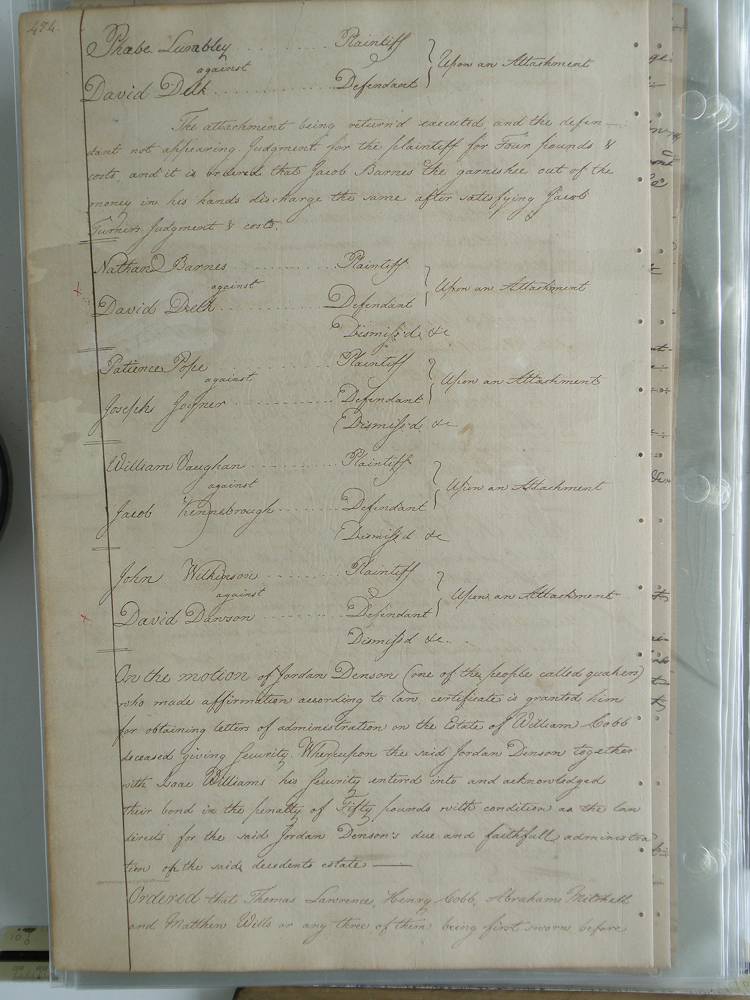 434.
Phœbe Lumbley ........ Plaintiff
against } Upon an Attachment
David Delk ............ Defendant
The attachment being return'd executed and the defen-
dant not appearing Judgment for the plaintiff for Four pounds &
costs, and it is ordered that Jacob Barnes the garnishee out of the
money in his hands discharge the same after satisfying Jacob
Turners Judgment & costs.
Nathan Barnes ........ Plaintiff
against } Upon an Attachment
x David Delk ............ Defendant
Dismiss'd &c
Patience Pope ........ Plaintiff
against } Upon an Attachment
Joseph Joyner ............ Defendant
Dismiss'd &c
William Vaughan ........ Plaintiff
against } Upon an Attachment
Jacob Kennebrough ........ Defendant
Dismiss'd &c
John Wilkinson ........ Plaintiff
against } Upon an Attachment
x David Dawson ........ Defendant
Dismiss'd &c.
On the motion of Jordan Denson (one of the people called quakers)
who made affirmation according to law certificate is granted him
for obtaining letters of administration on the Estate of William Cobb
deceased giving Security Whereupon the said Jordan Denson together
with Isaac Williams his Security enterd into and acknowledged
their bond in the penalty of Fifty pounds with condition as the law
directs for the said Jordan Denson's due and faithfull administra
tion of the said decedents estate —
Ordered that Thomas Lawrence, Henry Cobb, Abraham Mitchell
and Matthew Wills or any three of them being first sworn before